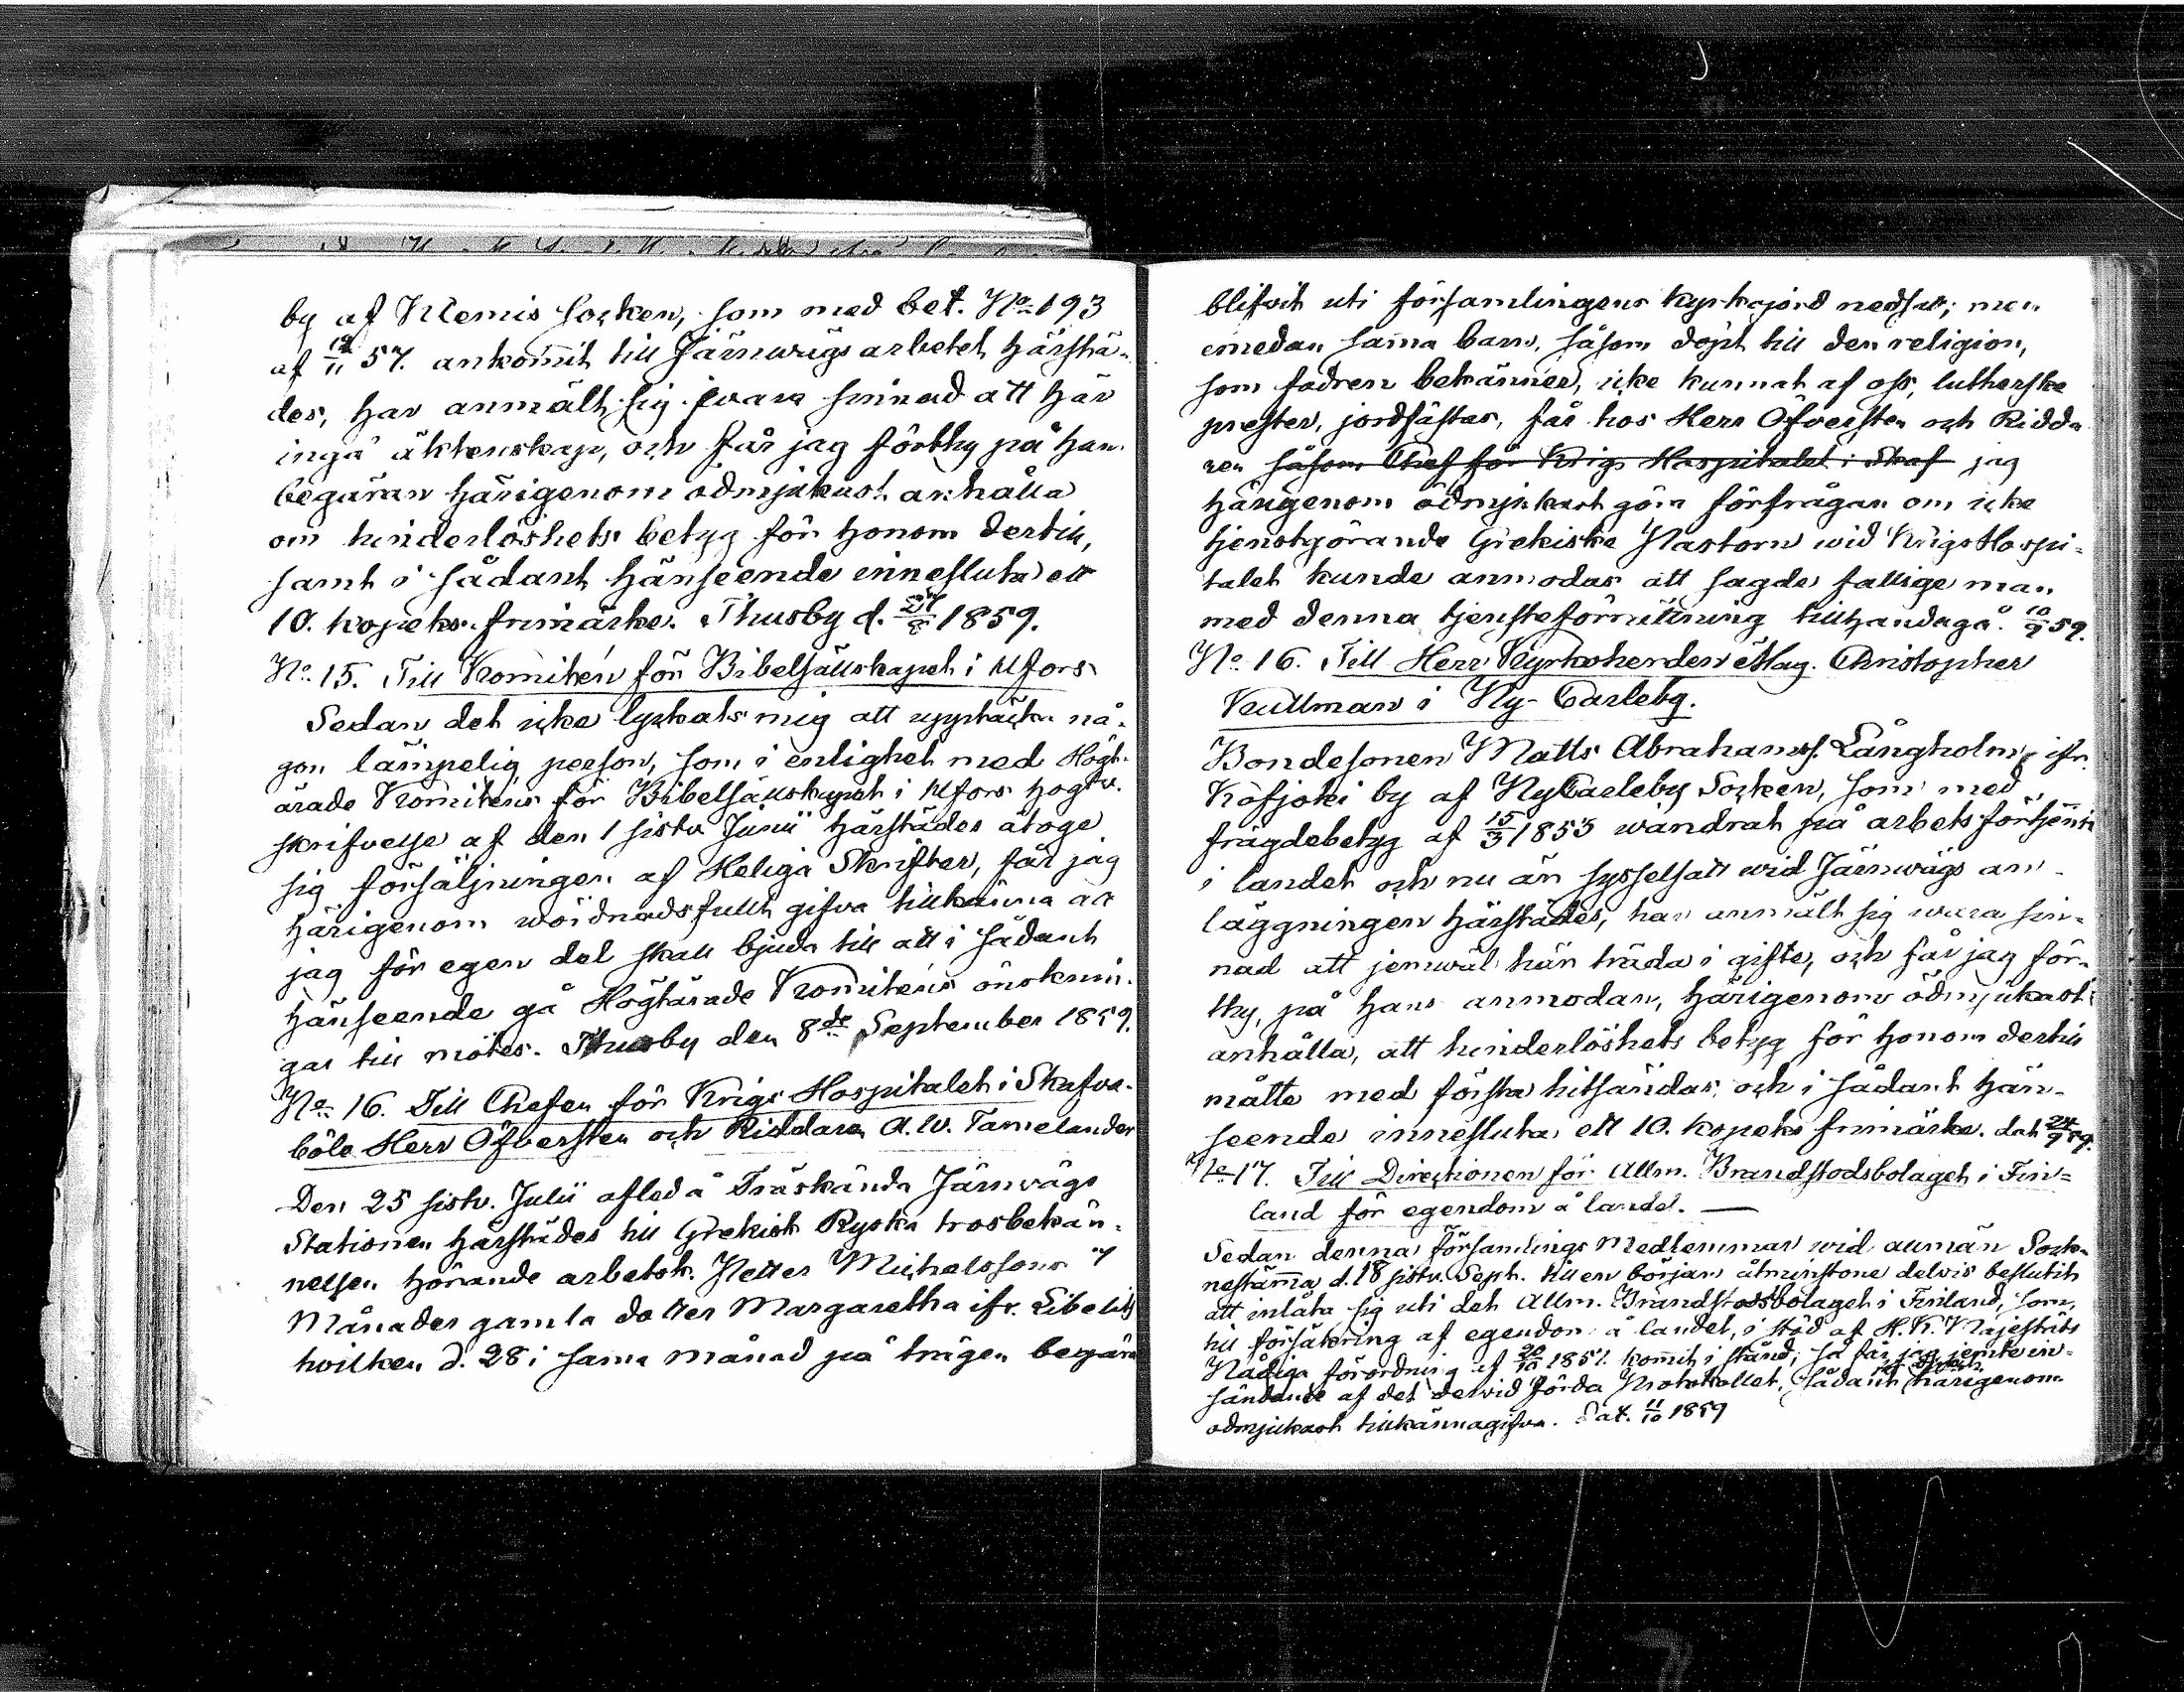 by af Klemis Socken, som med bet. No 193
af 12/11 57. ankom̄it till Järnwägs arbetet härstä-
des, har anmält sig wara sinnad att här
ingå äktenskap, och får jag förthy på hans
begäran härigenom ödmjukast anhålla
om hinderlöshets betyg för honom dertill,
samt i sådant hänseende innesluta ett
10. kopeks frimärke. Thusby d. 1859.
No 15. Till Komitén för Bibelsällskapet i Hfors
Sedan det icke lyckats mig att upptäcka nå-
gon lämpelig person, som i enlighet med Högt-
ärade Komitéens för Bibelsällskapet i Hfors högtv.
skrifvelse af den 1 sistv. Junii härstädes åtoge
sig försäljningen af Heliga Skrifter, får jag
härigenom wördnadsfullt gifva tillkänna att
jag för egen del skall bjuda till att i sådant
hänseende gå Högtärade Komitéens önsknin-
gar till mötes. Thusby den 8de September 1859.
No 16. Till Chefen för Krigs Hospitalet i Skafva-
böle Herr Öfversten och Riddaren A. W. Tamelander
Den 25 sistv. Julii afled å Träskända Järnvägs
Stationen härstädes till Grekisk Ryska trosbekän-
nelsen hörande arbetsk. Petter Michelssons 7
Månader gamla dotter Margaretha ifr. Libelits
hvilken d. 28 i sam̄a Månad på trägen begäran
blifvit uti församlingens kyrkojord nedsatt; men
emedan sam̄a barn, såsom döpt till den religion,
som fadren bekänner, icke kunnat af oss, lutherske
prester, jordfästas, får hos Herr Öfversten och Ridda-
ren såsom Chef för Krigs Hospitalet i Skaf jag
härigenom ödmjukast göra förfrågan om icke
tjenstgörande Grekiske Pastorn wid Krigs Hospi-
talet kunde anmodas att sagde fattige man
med denna tjensteförrättning tillhandagå. 10/9 59.
No 16. Till Herr Kyrkoherden &Mag. Christopher
Kullman i Ny-Carleby.
Bondesonen Matts Abrahamss. Långholm, ifr.
Kofjoki by af NyCarleby Socken, som med
frägdebetyg af 15/3 1853 wandrat på arbetsförtjenst
i landet och nu är sysselsatt wid Järnwägs an-
läggningen härstädes, har anmält sig wara sin-
nad att jemwäl här träda i gifte, och får jag för-
thy, på hans anmodan, härigenom ödmjukast
anhålla, att hinderlöshets betyg för honom dertill
måtte med första hitsändas, och i sådant hän-
seende innesluta ett 10. kopeks frimärke. dat 24/9 59.
No 17. Till Direktionen för Allm. Brandstodsbolaget i Fin-
land för egendom å landet. —
Sedan denna församlings Medlemmar wid allmän Sock-
nestäm̄a d. 18 sistv. Sept. till en början åtminstone delvis beslutit
att inlåta sig uti det Allm. Brandstodsbolaget i Finland, som,
till försäkring af egendom å landet, i stöd af H. K. Majestäts
Nådiga förordning af 1857. kom̄it i stånd, så får jag jemte in-
sändande af det dervid förda Protokollet, sådant härigenom
ödmjukast tillkännagifva. Dat. 11/10 1859